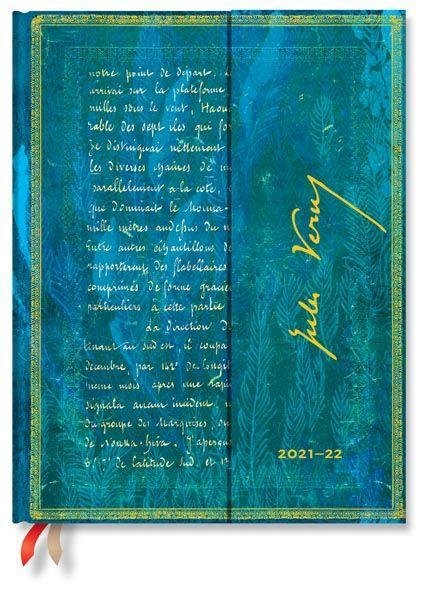 notre point de départ. L
arrivai sur la plateforme
milles sous le vent, Haou
rable des sept iles qui for
Je distinguai nettement
les diverses chaînes de m
parallèlement à la côte,
que dominait le Nouna-
mille mètres audessus du n
Entre autres échantillons d
rapportèrent des flabellaires
comprimés de forme gracieu
particuliers à cette partie
la Direction D
tenant au sud est, il coupa
décembre, par 142° de longit
meme mois après une rapi
signala aucun incident,
du groupe des Marquises,
de Nouka-Hiva. J'aperçus
de latitude sud, et 13
Jules Verne
2021–22